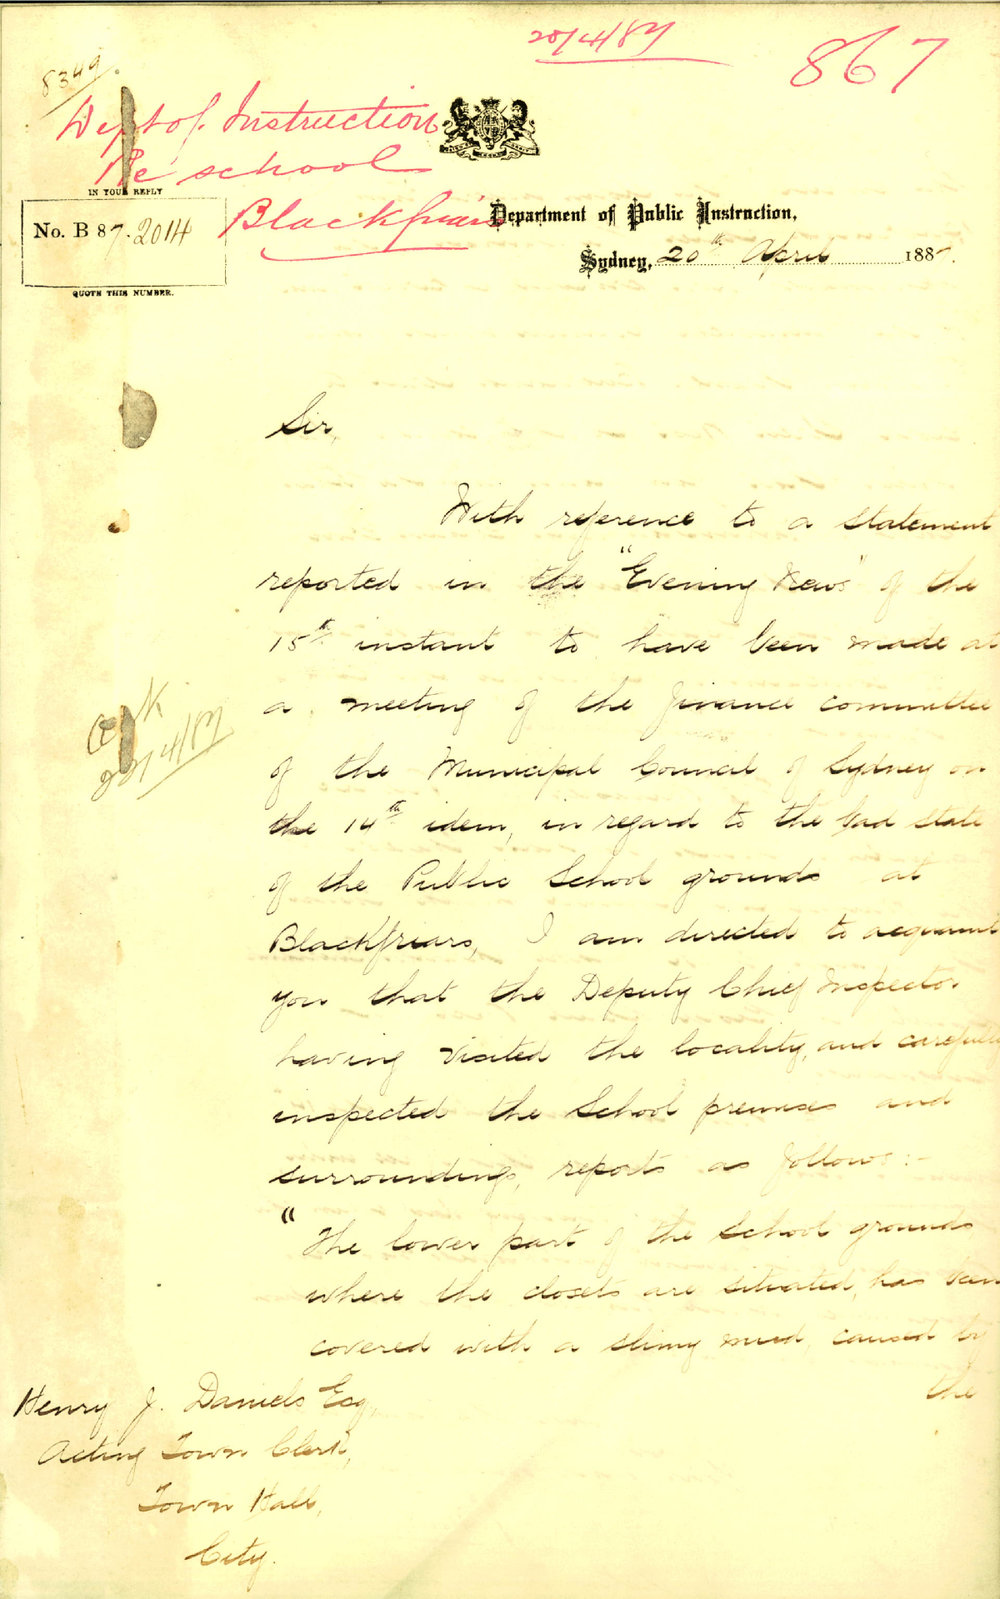 20/4/87
867
8349.
Dept of Instruction
Re school
Blackfriars
IN YOUR REPLY
No. B 87.2014
QUOTE THIS NUMBER.
Department of Public Instruction,
Sydney, 20th April 1887.
Sir,
With reference to a statement
reported in the "Evening News" of the
15th instant to have been made at
a meeting of the finance committee
of the Municipal Council of Sydney on
the 14th idem, in regard to the bad state
of the Public School grounds at
Blackfriars, I am directed to acquaint
you that the Deputy Chief Inspector
having visited the locality, and carefully
inspected the School premises and
surroundings, reports as follows:-
"The lower part of the School grounds
where the closets are situated, has been
covered with a slimy mud caused by
the
22/4/87
Henry J. Daniels Esq,
Acting Town Clerk,
Town Hall,
City.